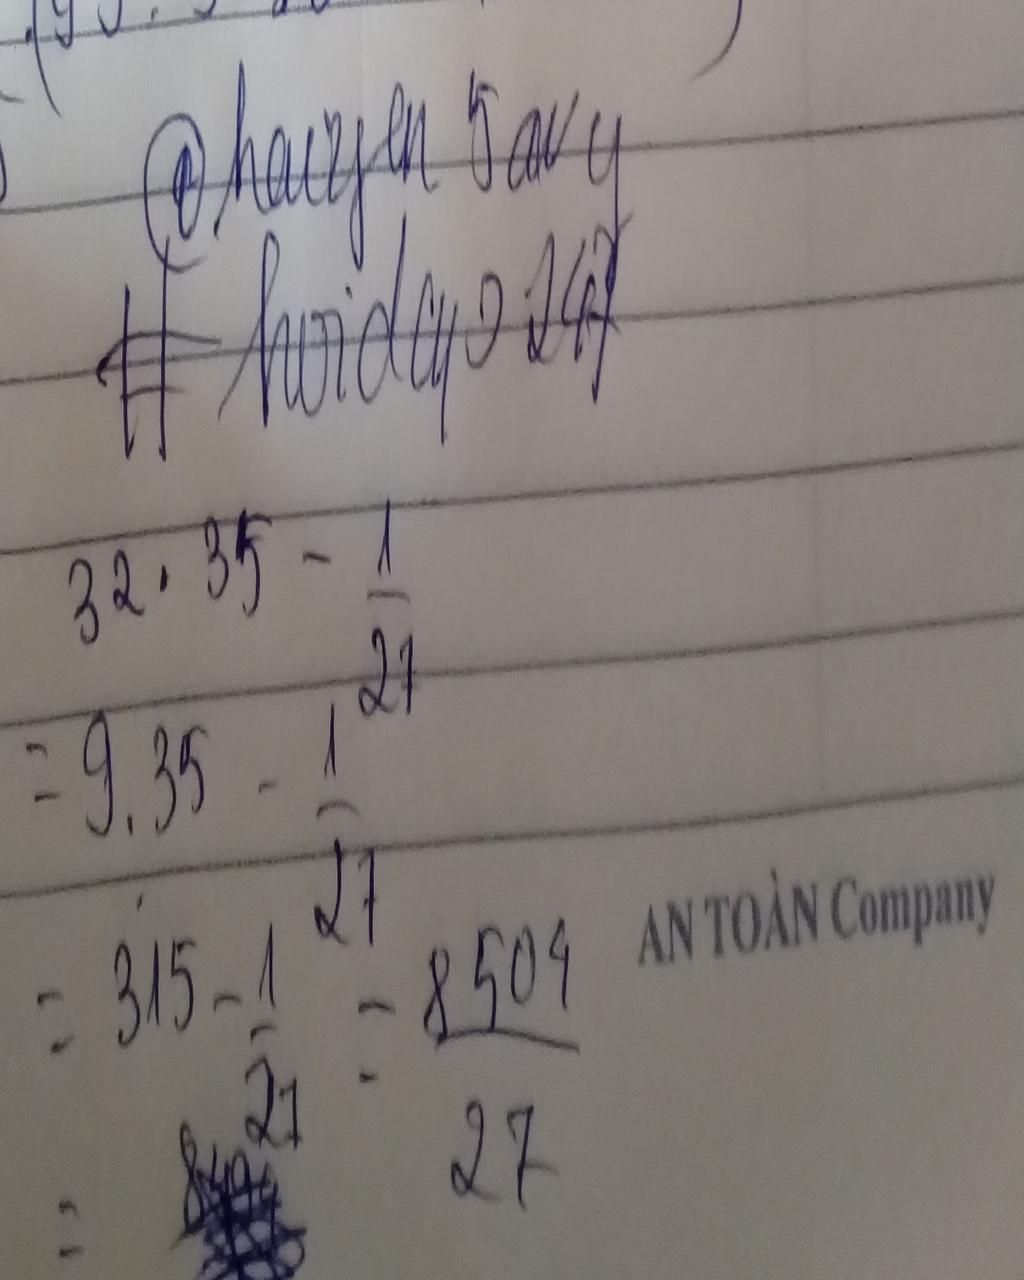 @hauyen 5 avy
# hoidap 247
32 . 35 - 1/27
= 9.35 - 1/27
= 315 - 1/27 = 8504/27
AN TOÀN Company
=